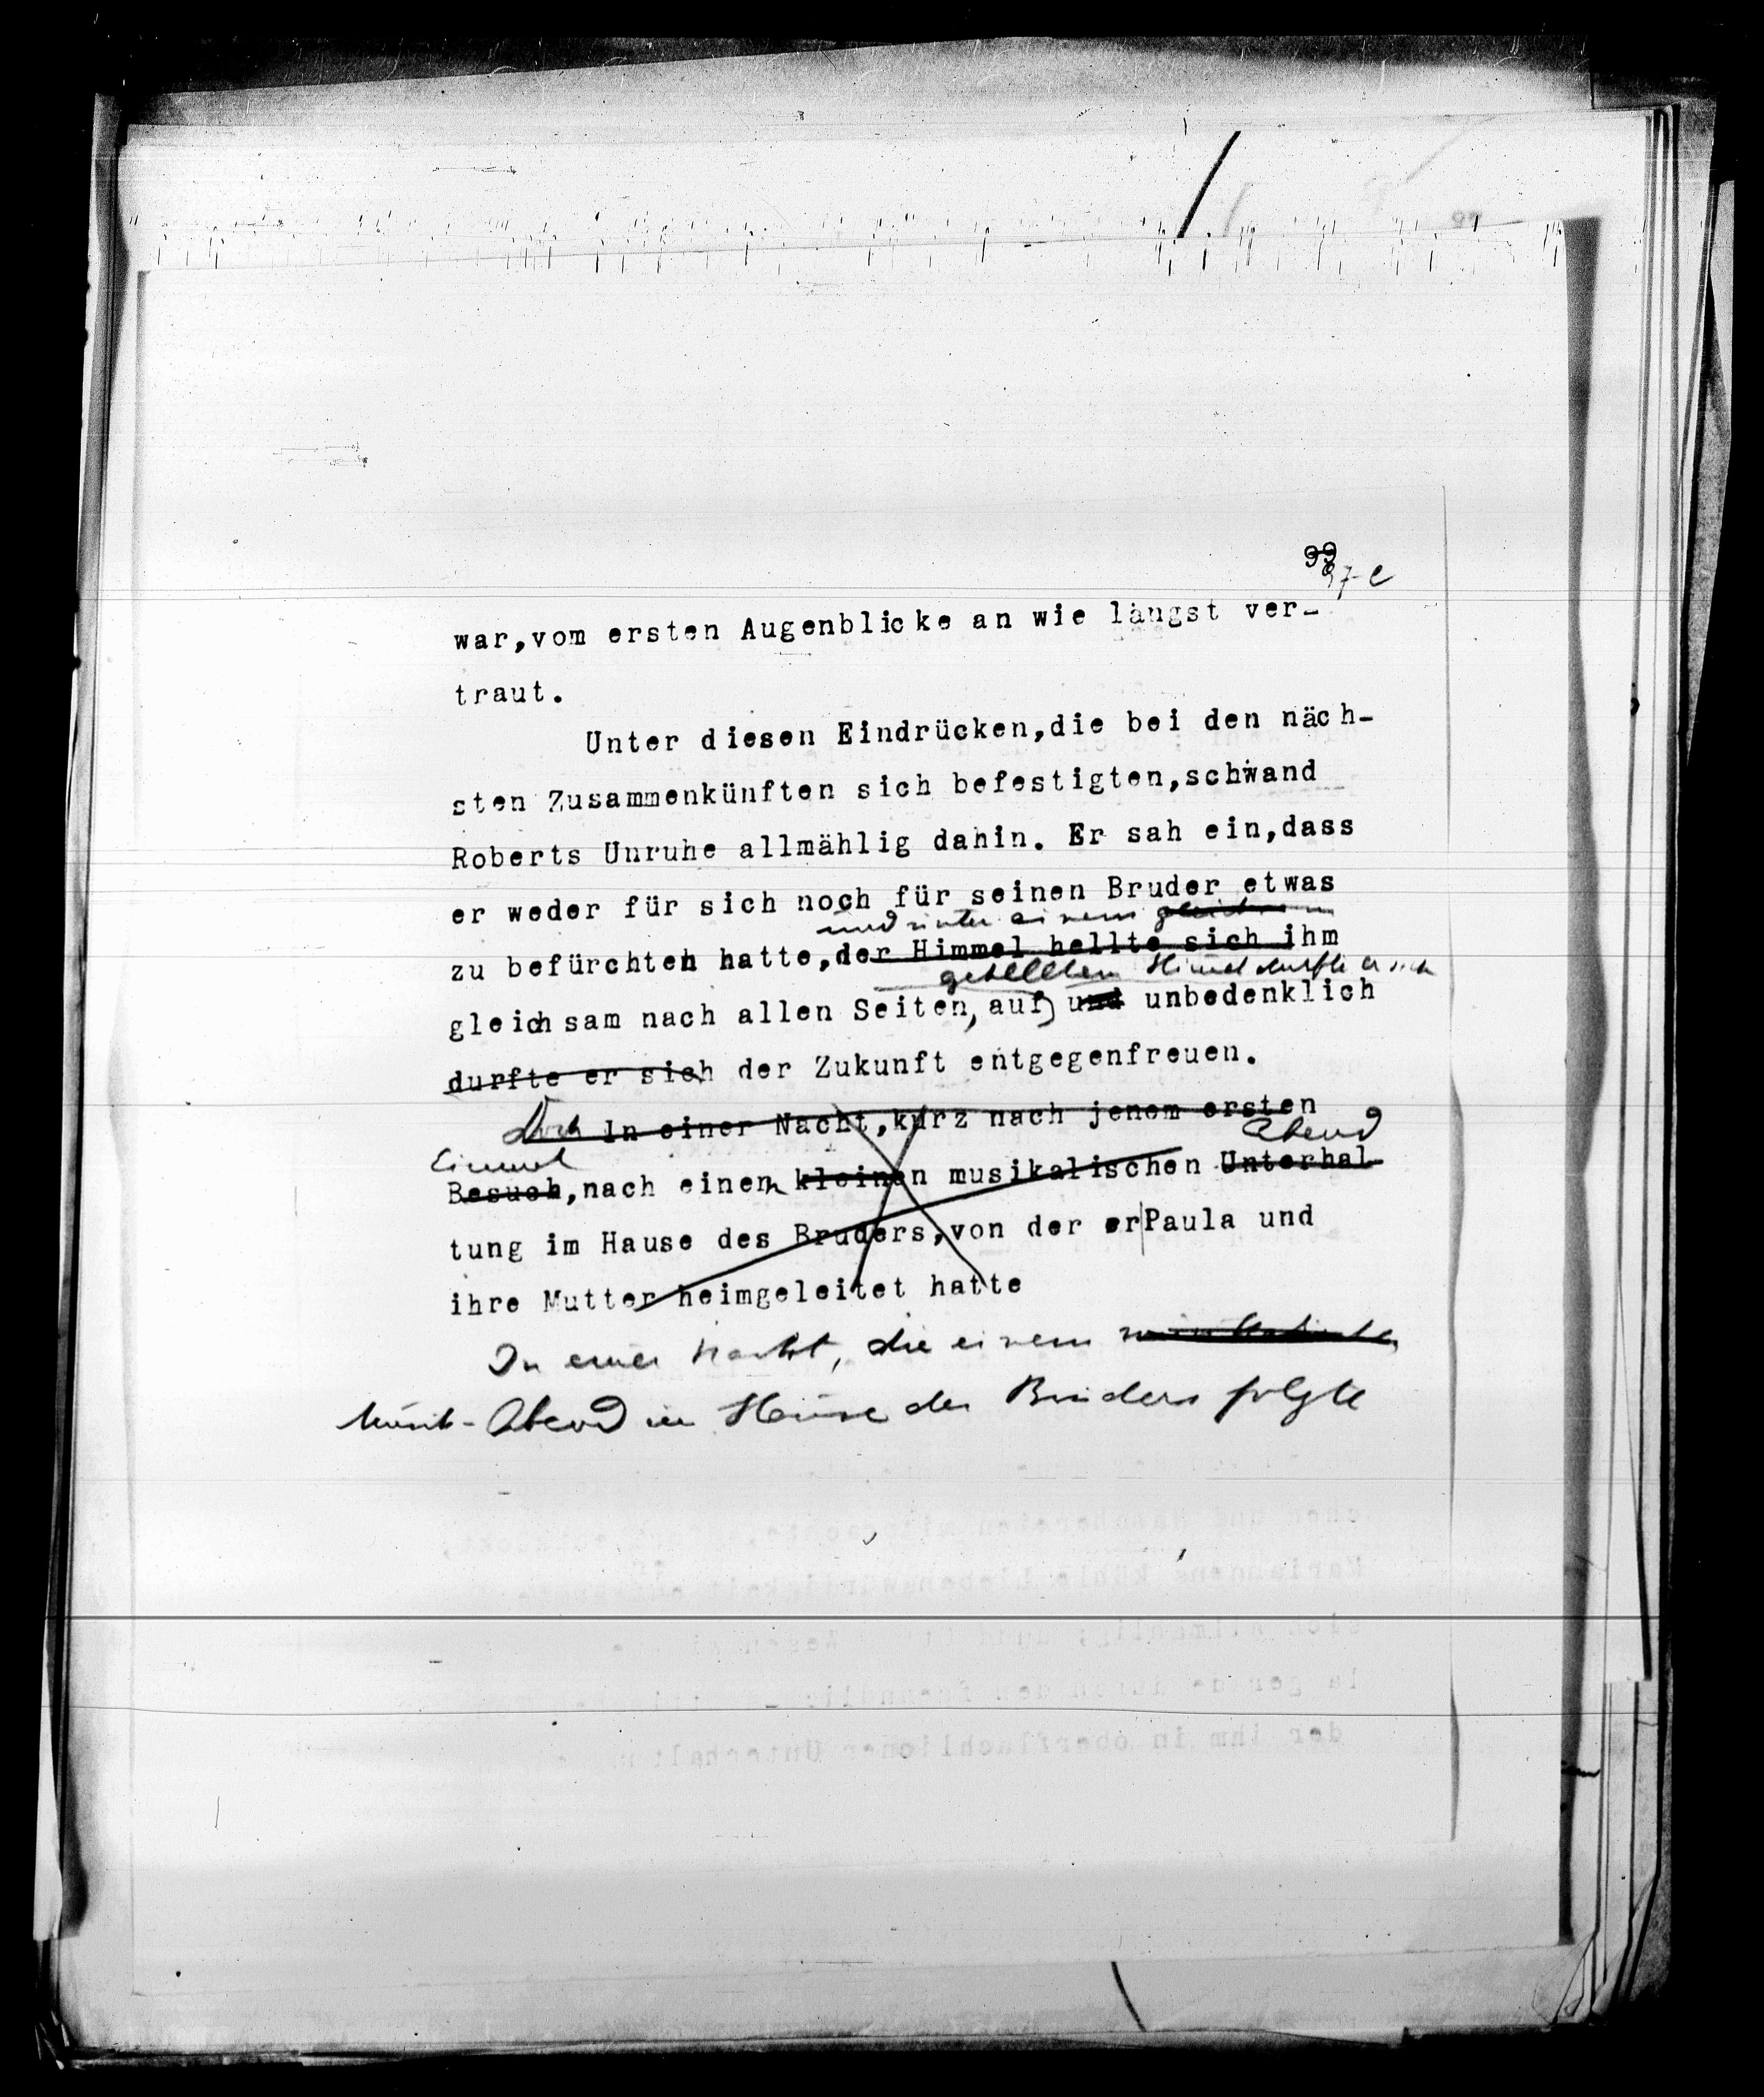 99
97-e
war,vom ersten Augenblicke an wie längst ver-
traut.
Unter diesen Eindrücken,die bei den näch-
sten Zusammenkünften sich befestigten,schwand
Roberts Unruhe allmählig dahin. Er sah ein,dass
er weder für sich noch für seinen Bruder etwas
und unter einem
zu befürchten hatte,der Himmel hellte sich ihm
gehellten Himmel durfte er sich
gleichsam nach allen Seiten, auf und unbedenklich
durfte er sich der Zukunft entgegenfreuen.
Doch In einer Nacht,kurz nach jenem ersten
Abend
Einmal
Besuch,nach einen kleinen musikalischen Unterhal-
tung im Hause des Bruders,von der er Paula und
ihre Mutter heimgeleitet hatte
In einer Nacht, die einem
Musik-Abend im Hause des Bruders folgte